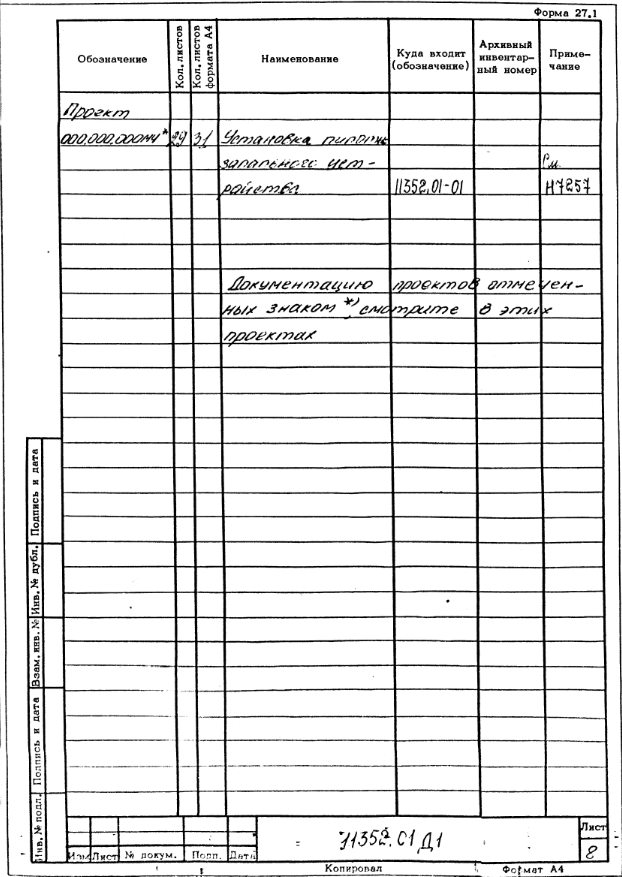 Форма 27.1
Обозначение
Кол. листов
Кол. листов формата А4
Наименование
Куда входит (обозначение)
Архивный инвентарный номер
Примечание
Проект
000.000.000 * 29 31 Установка
запального уст-
ройства 11352.01-01 См. Н7257
Документацию проектов отмечен-
ных знаком *) смотрите в этих
проектах
Подпись и дата
Инв. № дубл.
Взам. инв. №
Подпись и дата
Инв. № подл.
11352.01 Д1
Лист
8
Изм Лист № докум. Подп. Дата
Копировал Формат А4